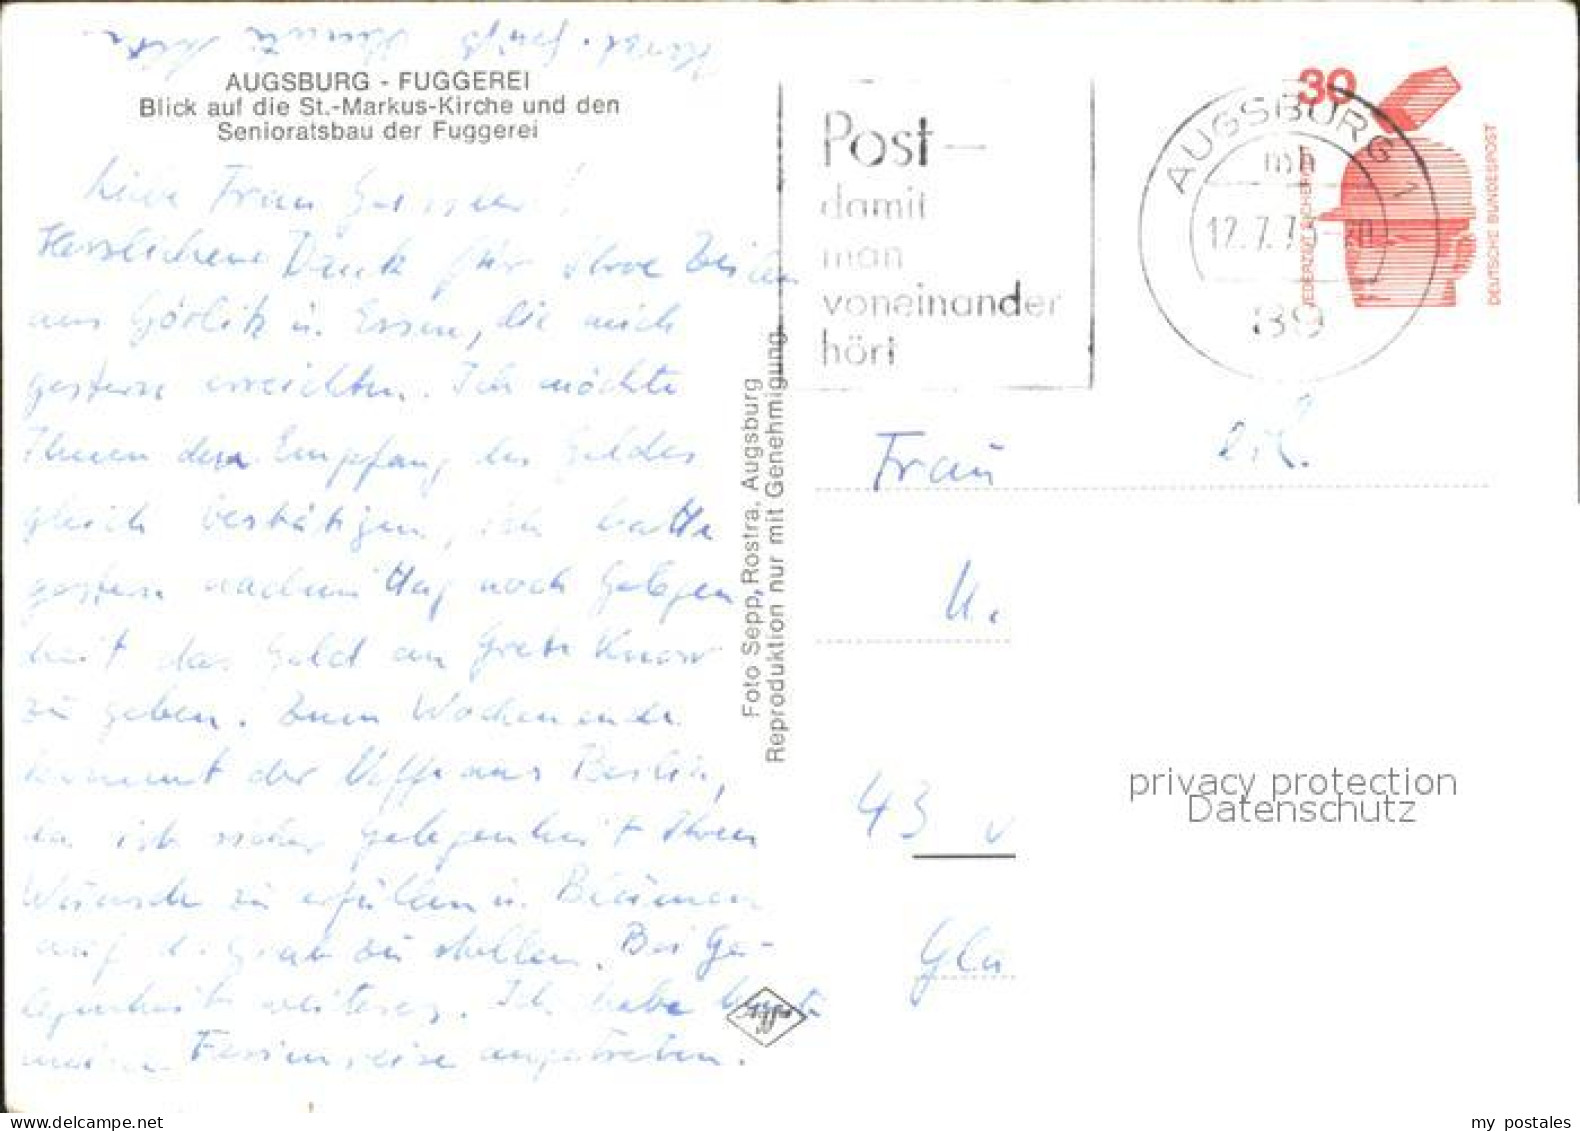 AUGSBURG - FUGGEREI
Blick auf die St.-Markus-Kirche und den
Senioratsbau der Fuggerei
Liebe Frau
Herzlichen Dank für Ihre Zeilen
aus Görlitz u. Essen, die mich
gestern erreichten. Ich möchte
Ihnen den Empfang des Geldes
gleich bestätigen, ich hatte
gestern nachmittag noch Gelegen
heit das Geld an Grete
zu geben. Zum Wochenende
kommt der Neffe aus Berlin,
da ist sicher Gelegenheit Ihren
Wunsch zu erfüllen u. Blumen
auf d. Grab zu stellen. Bei Ge-
legenheit weiteres. Ich habe heute
meine Ferienreise angetreten.
Herzl. Grüße
Foto Sepp Rostra, Augsburg
Reproduktion nur mit Genehmigung
Post-
damit
man
voneinander
hört
AUGSBURG 1
mh
12.7.7 -20
89
30
JEDERZEIT SICHERHEIT
DEUTSCHE BUNDESPOST
Frau
43
Gla
privacy protection
Datenschutz
my postales